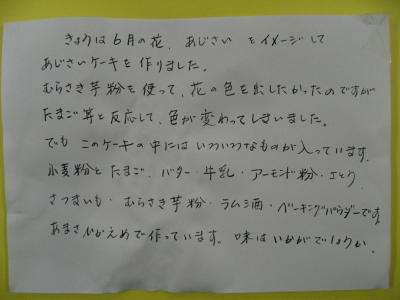 きょうは6月の花、あじさい をイメージして
あじさいケーキを作りました。
むらさき芋粉を使って、花の色を出したかったのですが
たまご等と反応して、色が変わってしまいました。
でも このケーキの中には いろいろなものが入っています。
小麦粉とたまご、バター・牛乳・アーモンド粉・さとう
さつまいも・むらさき芋粉・ラム酒・ベーキングパウダーです。
あまさひかえめで作っています。味はいかがでしょうか。